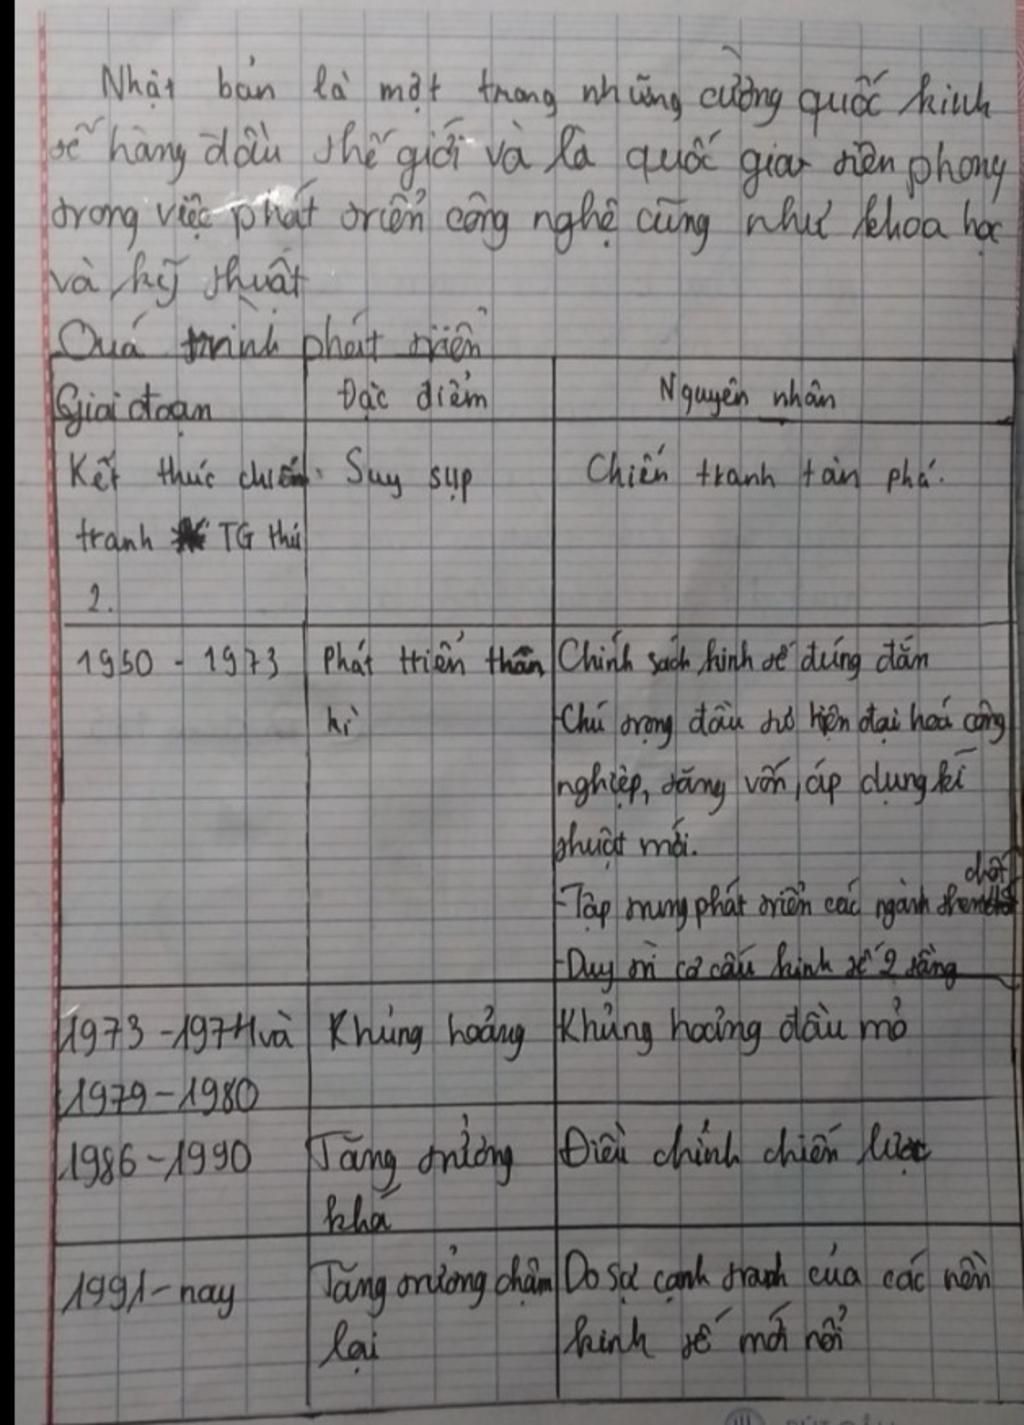 Nhật bản là một trong những cường quốc kinh
tế hàng đầu thế giới và là quốc gia tiên phong
trong việc phát triển công nghệ cũng như khoa học
và kỹ thuật
Quá trình phát triển
Giai đoạn
Đặc điểm
Nguyên nhân
Kết thúc chiến
tranh TG thứ
2.
Suy sụp
Chiến tranh tàn phá.
1950 - 1973
Phát triển thần
kì
Chính sách kinh tế đúng đắn
-Chú trọng đầu tư hiện đại hoá công
nghiệp, tăng vốn, áp dụng kĩ
thuật mới.
-Tập trung phát triển các ngành then chốt
-Duy trì cơ cấu kinh tế 2 tầng
1973 - 1974 và
1979 - 1980
Khủng hoảng
Khủng hoảng dầu mỏ
1986 - 1990
Tăng trưởng
khá
Điều chỉnh chiến lược
1991 - nay
Tăng trưởng chậm
lại
Do sự cạnh tranh của các nền
kinh tế mới nổi